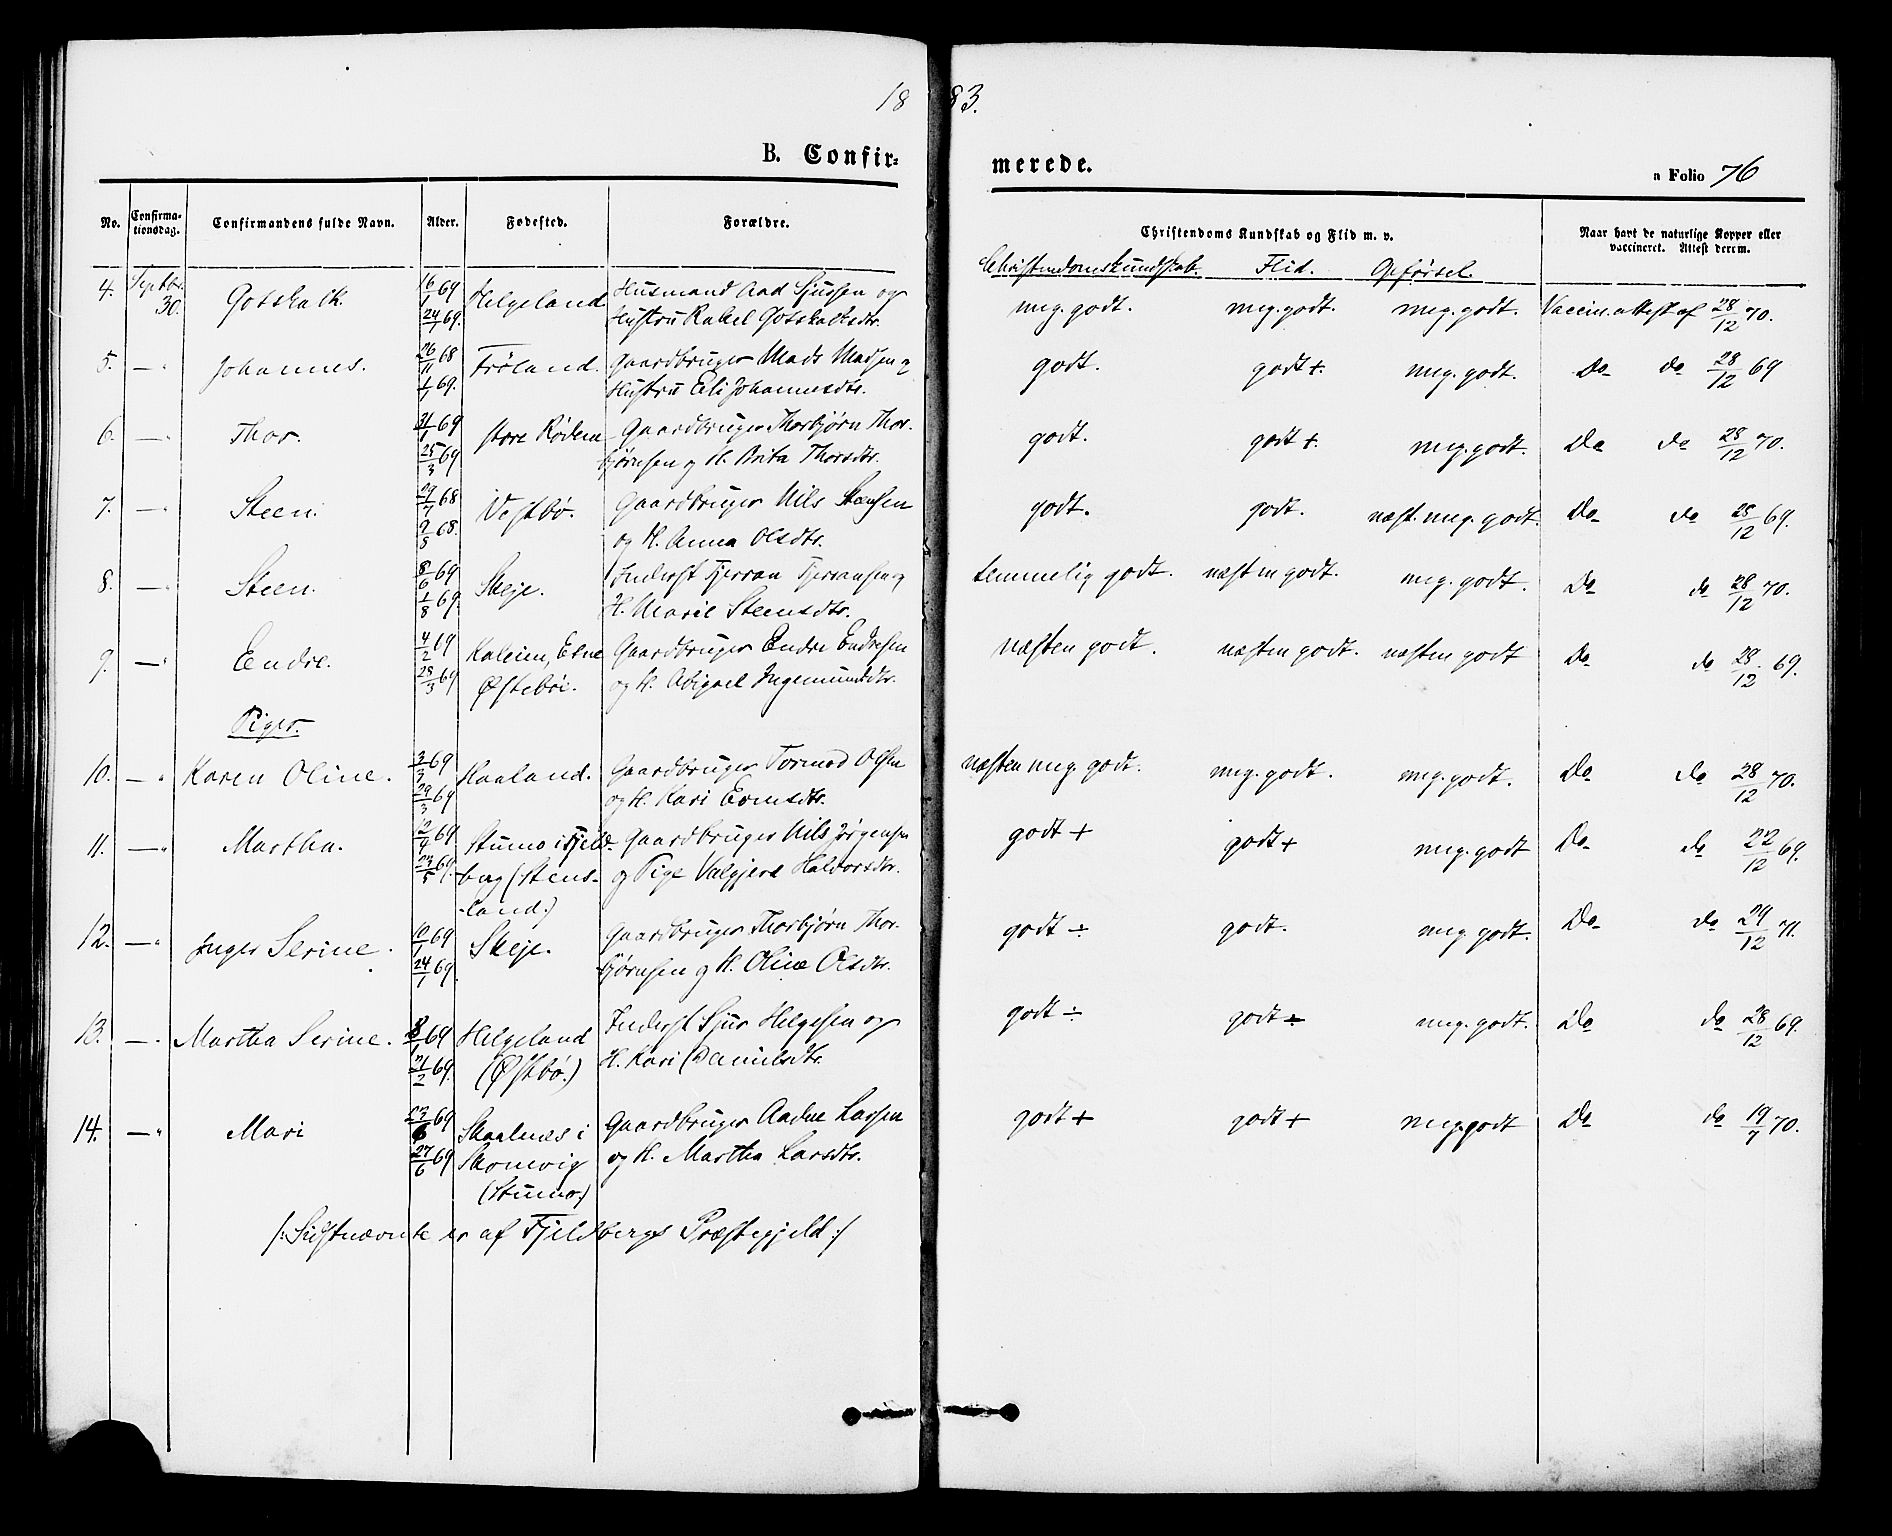 18 83.
B. Confir= merede. n Folio 76
No. Confirma-tionsdag. Confirmandens fulde Navn. Alder. Fødested. Forældre. Christendoms Kundskab og Flid m. v. Naar havt de naturlige Kopper eller vaccineret. Attest derom.
Christendomskundskab. Flid. Opførsel.
4. Septbr. 30. Gotskalk. 16/1 69 Helgeland Husmand Aad Sjursen og meg. godt. meg. godt. meg. godt. Vaccin. attest af 28/12 70.
24/1 69. Hustru Rakel Gotskalksdtr.
5. — " Johannes. 26/11 68 Frøland. Gaardbruger Mads Madsen og godt. godt +. meg. godt. Do do 28/12 69
1/1 69. Hustru Eli Johannesdtr.
6. — " Thor. 31/1 69 store Rødne Gaardbruger Thorbjørn Thor- godt. godt +. meg. godt. Do do 28/12 70.
25/3 69 bjørnsen og H. Brita Thorsdtr.
7. — " Steen. 29/7 68 Vestbø. Gaardbruger Nils Steensen godt. godt. næst. meg. godt. Do do 28/12 69.
9/8 68. og H. Anna Olsdtr.
8. — " Steen. 8/6 69 Skeje. Inderst Tjerran Tjerransen og temmelig godt. næsten godt. meg. godt. Do do 28/12 70.
1/8 69. H. Marie Steensdtr.
9. — " Endre. 4/2 69 Kaleim, Etne Gaardbruger Endre Endresen næsten godt. næsten godt. næsten godt Do do 28/12 69.
28/3 69 Østebøe. og H. Abigael Ingemundsdtr.
Piger.
10. — " Karen Oline. 3/3 69 Haaland. Gaardbruger Tormod Olsen næsten meg. godt. meg. godt. meg. godt. Do do 28/12 70.
29/3 69 og H. Kari Ednisdtr.
11. — " Martha. 2/4 69 Stumo i Fjeld- Gaardbruger Nils Jørgensen godt + godt + meg. godt Do do 22/12 69.
23/5 69. berg (Stens- og Pige Valgjerd Halvorsdtr.
-land.)
12. — " Inger Serine. 10/1 69 Skeje. Gaardbruger Thorbjørn Thor- godt ÷ godt. meg godt. Do do 29/12 71.
24/1 69. bjørnsen og H. Oline Olsdtr.
13. — " Martha Serine. 8/1 69 Helgeland Inderst Sjur Helgesen og godt ÷ godt ÷ meg. godt. Do do 28/12 69.
21/2 69. (Østbø.) H. Kari Danielsdtr.
14. — " Mari 23/6 69 Skaalnæs i Gaardbruger Aadne Larsen godt + godt + meg. godt Do do 19/7 70.
27/6 69 Skonevig og H. Martha Larsdtr.
(Stumo.)
/: Sidstnævnte er af Fjeldbergs Præstegjeld :/